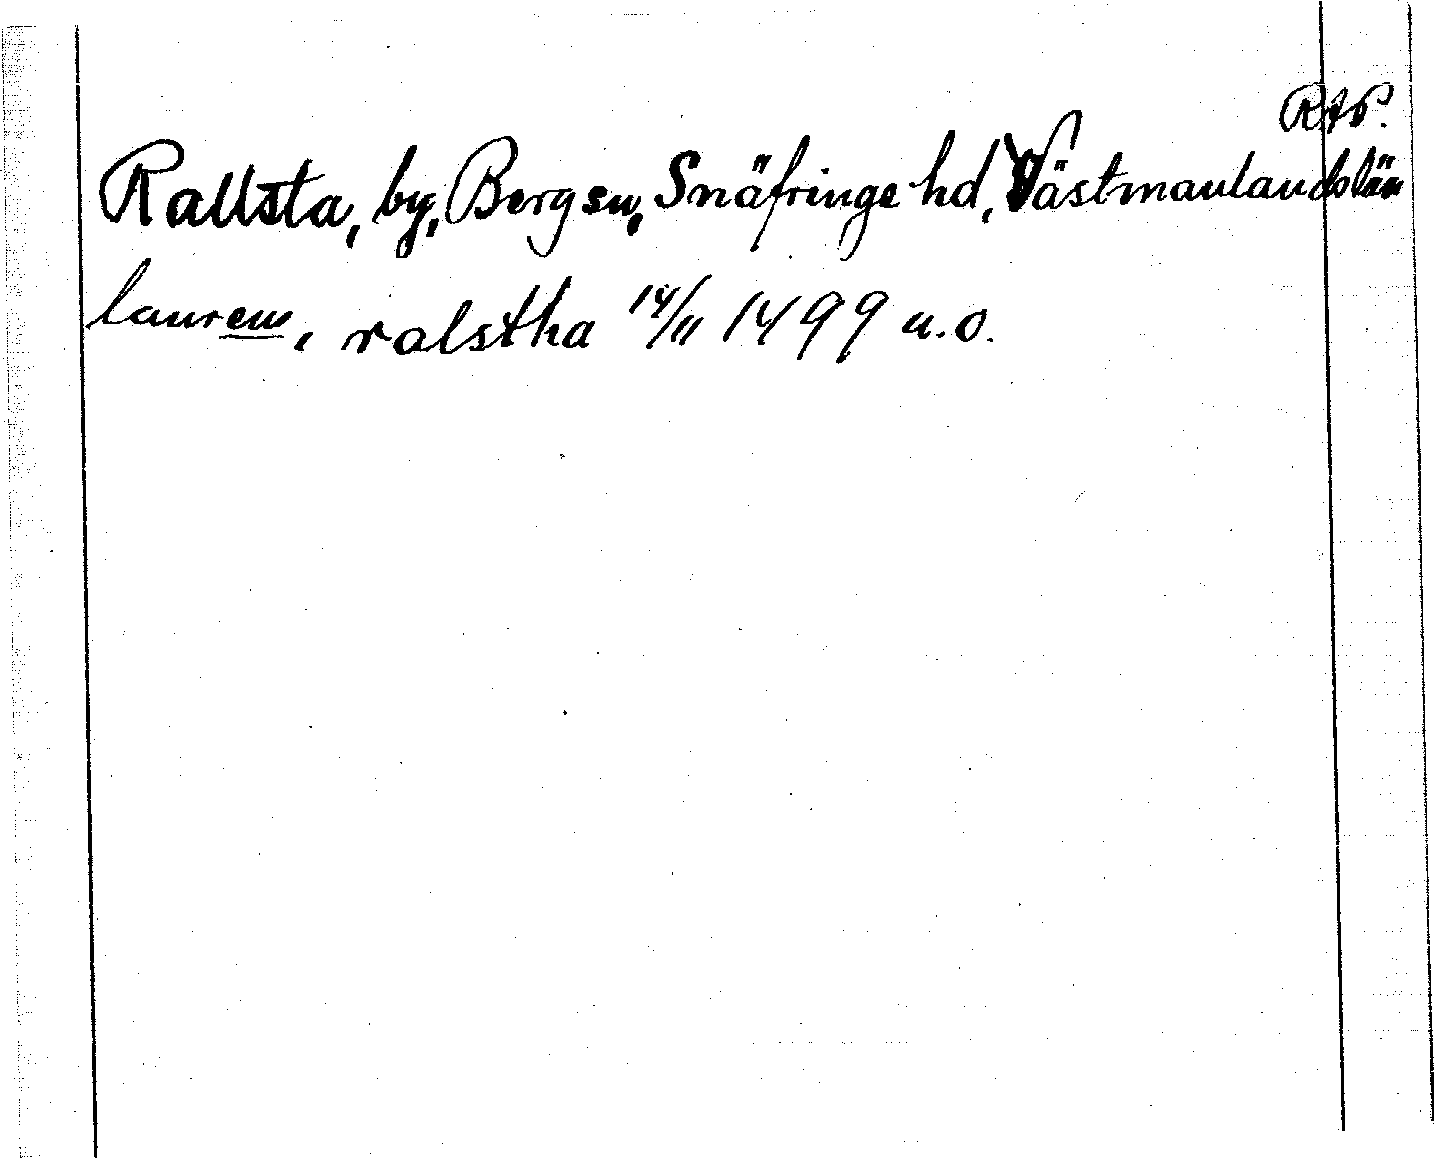 RAP.
Rallsta, by, Berg sn, Snäfringe hd, Västmanlands län
laurens, ralstha 14/11 1499 u.o.